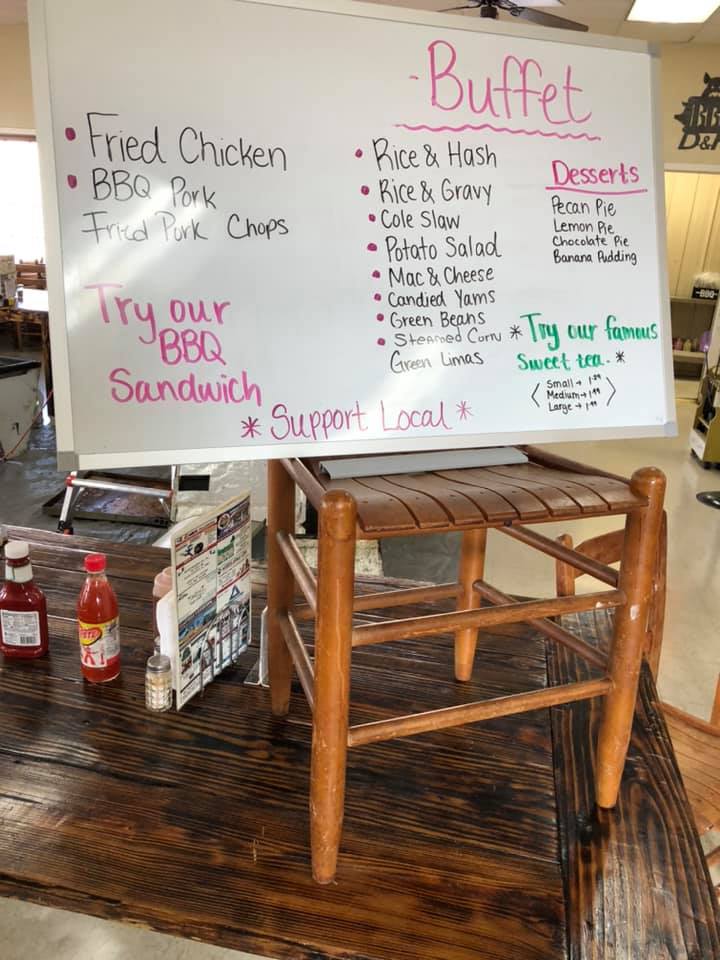 Buffet
• Fried Chicken
• BBQ Pork
Fried Pork Chops
Try our
BBQ
Sandwich
• Rice & Hash
• Rice & Gravy
• Cole Slaw
• Potato Salad
• Mac & Cheese
• Candied Yams
• Green Beans
• Steamed Corn
Green Limas
Desserts
Pecan Pie
Lemon Pie
Chocolate Pie
Banana Pudding
* Try our famous
sweet tea. *
Small → 1.29
Medium → 1.49
Large → 1.99
* Support Local *